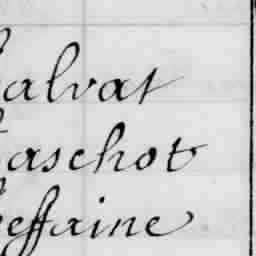 alvat
aschot
effaine